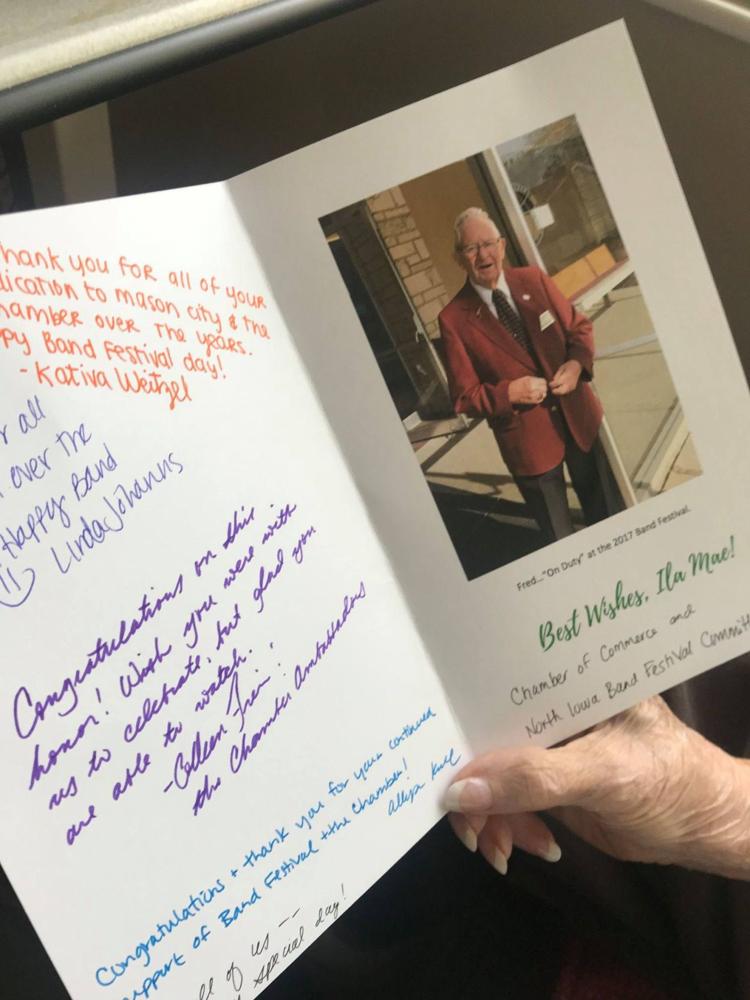 hank you for all of your
dication to mason city & the
hamber over the years.
ppy Band Festival day!
- Kativa Weitzel
r all
over the
Happy Band
Linda Johanns
Congratulations on this
honor! Wish you were with
us to celebrate, but glad you
are able to watch.
- Colleen Frein &
the Chamber Ambassadors
Congratulations + thank you for your continued
upport of Band Festival + the Chamber!
ll of us --
special day!
Fred..."On Duty" at the 2017 Band Festival.
Best Wishes, Ila Mae!
Chamber of Commerce and
North Iowa Band Festival Committ